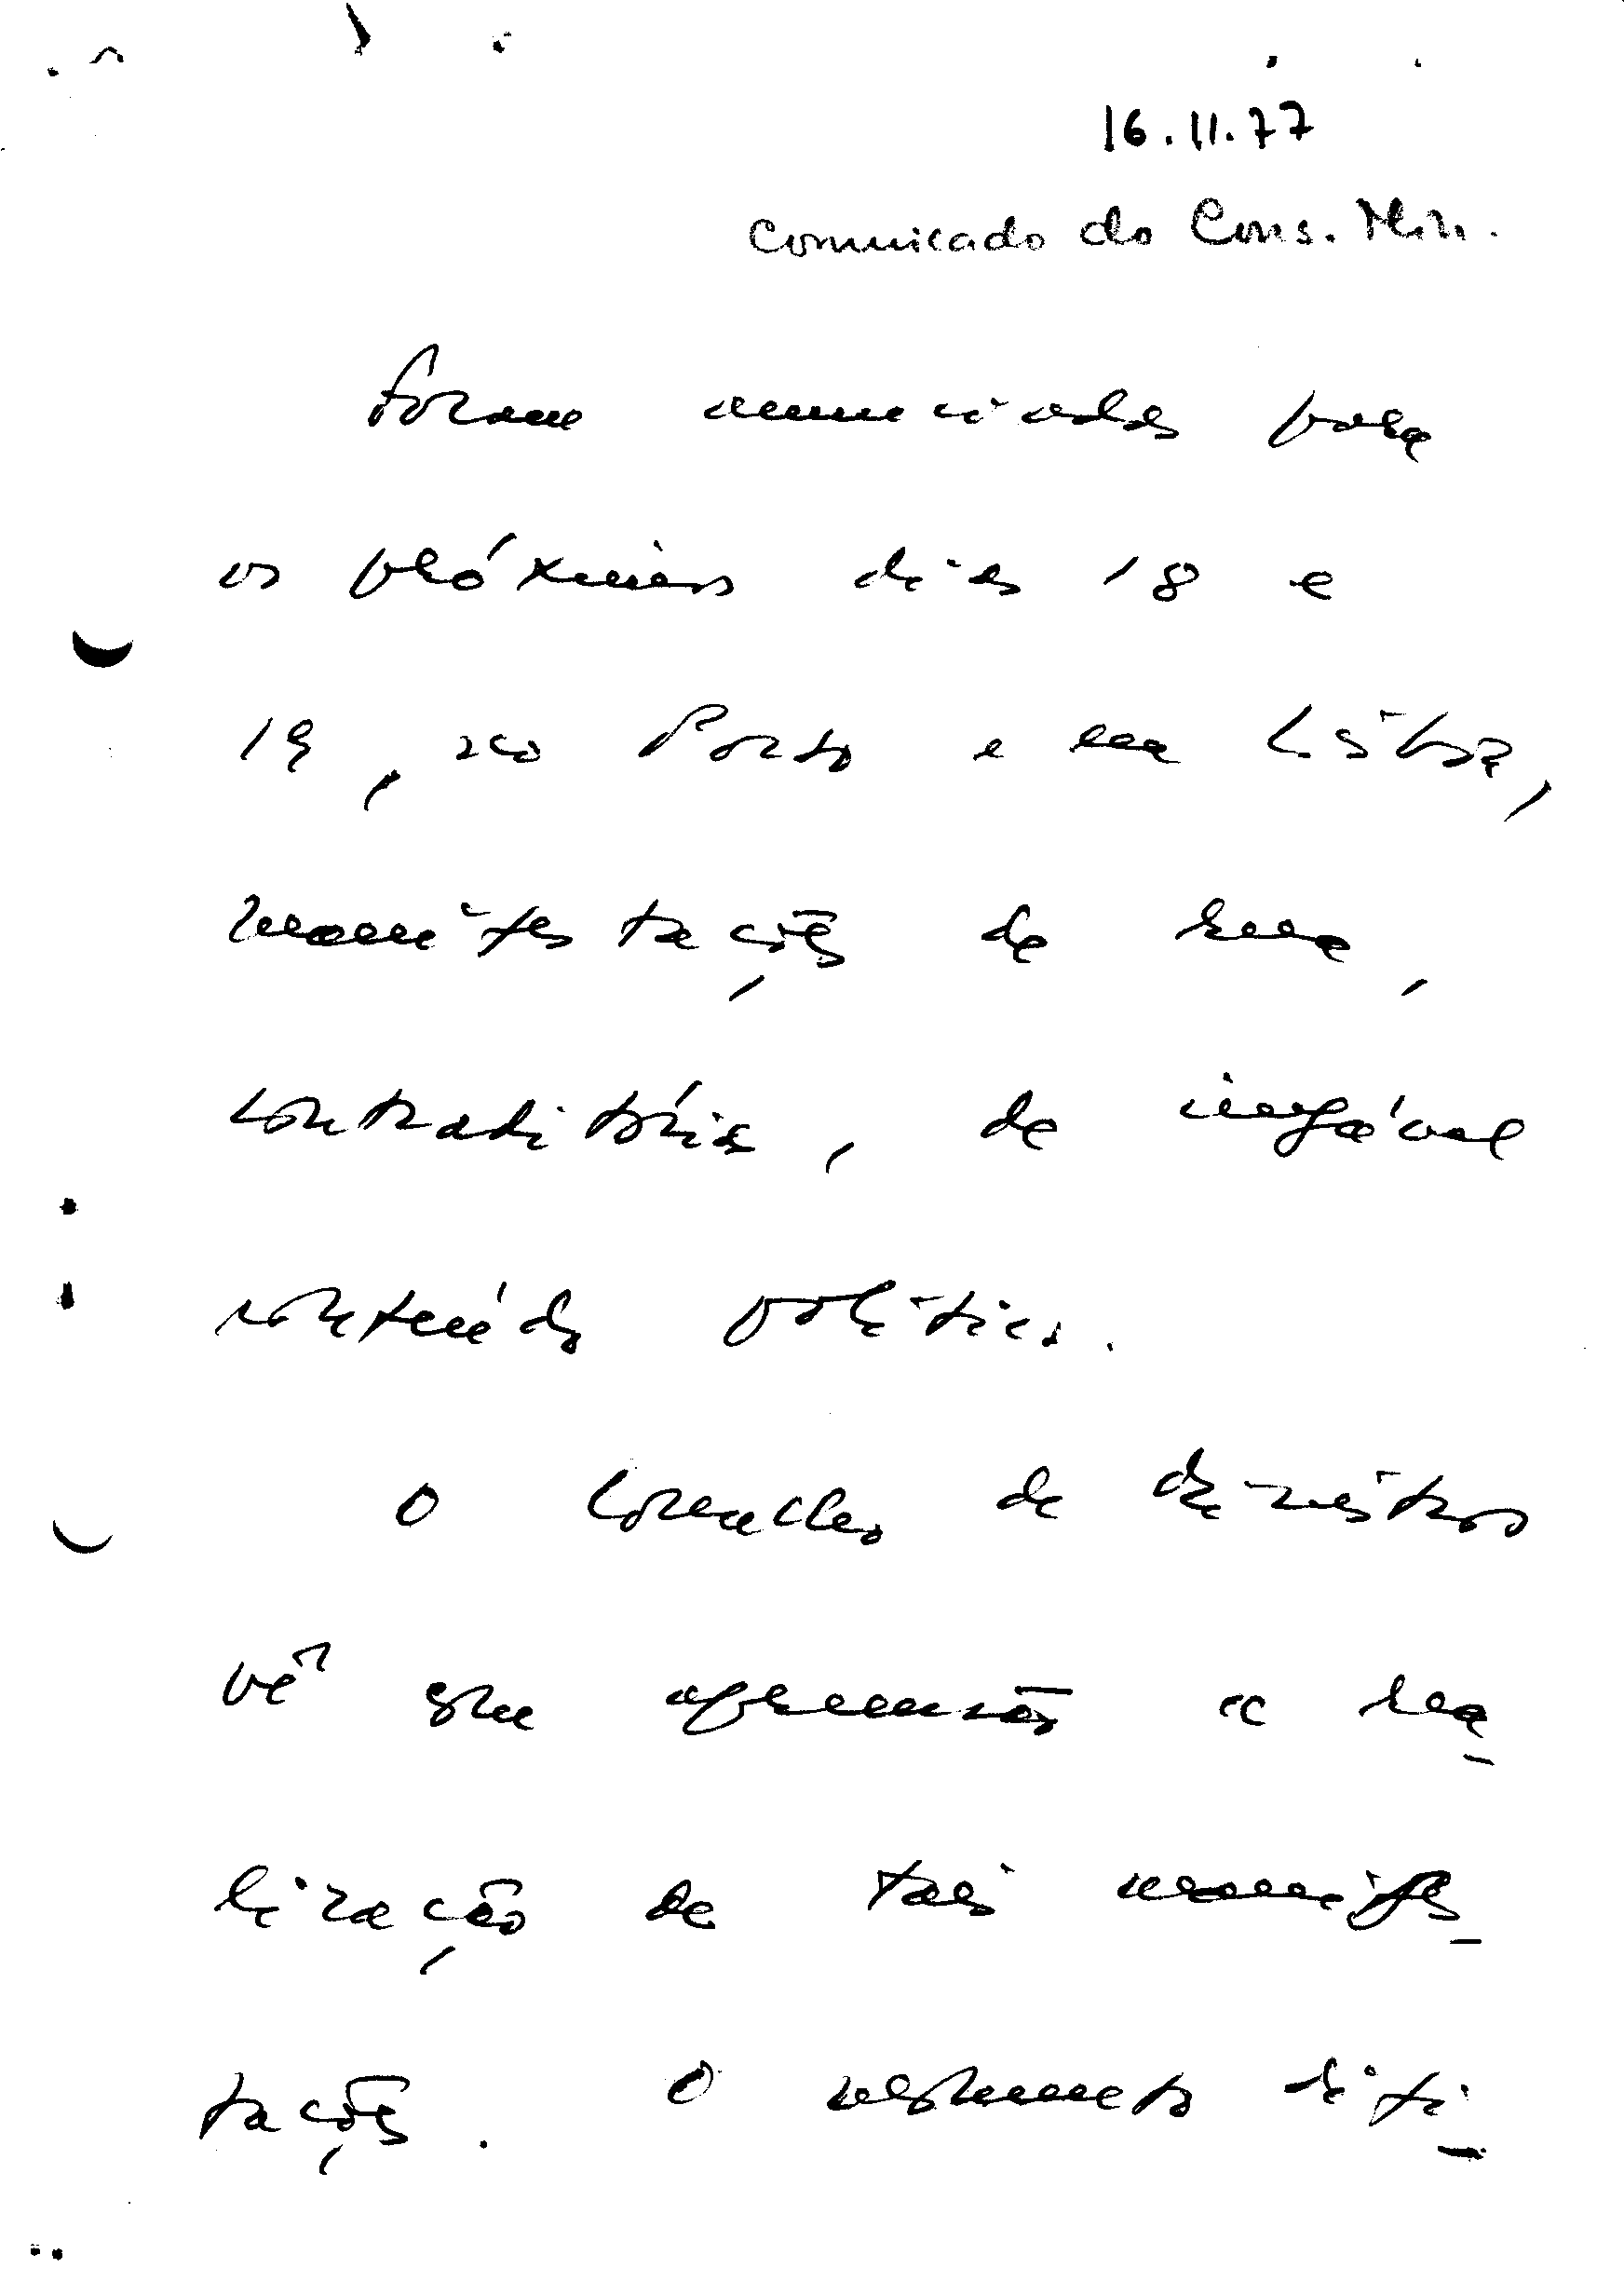 16.11.77
Comunicado do Cons. Min.
Foram anunciadas para
os próximos dias 18 e
19, no Porto e em Lisboa,
manifestações de rua,
contraditórias, de inegável
conteúdo político.
O Conselho de Ministros
vê com apreensão a rea_
lização de tais manifes_
tações. O momento difí_